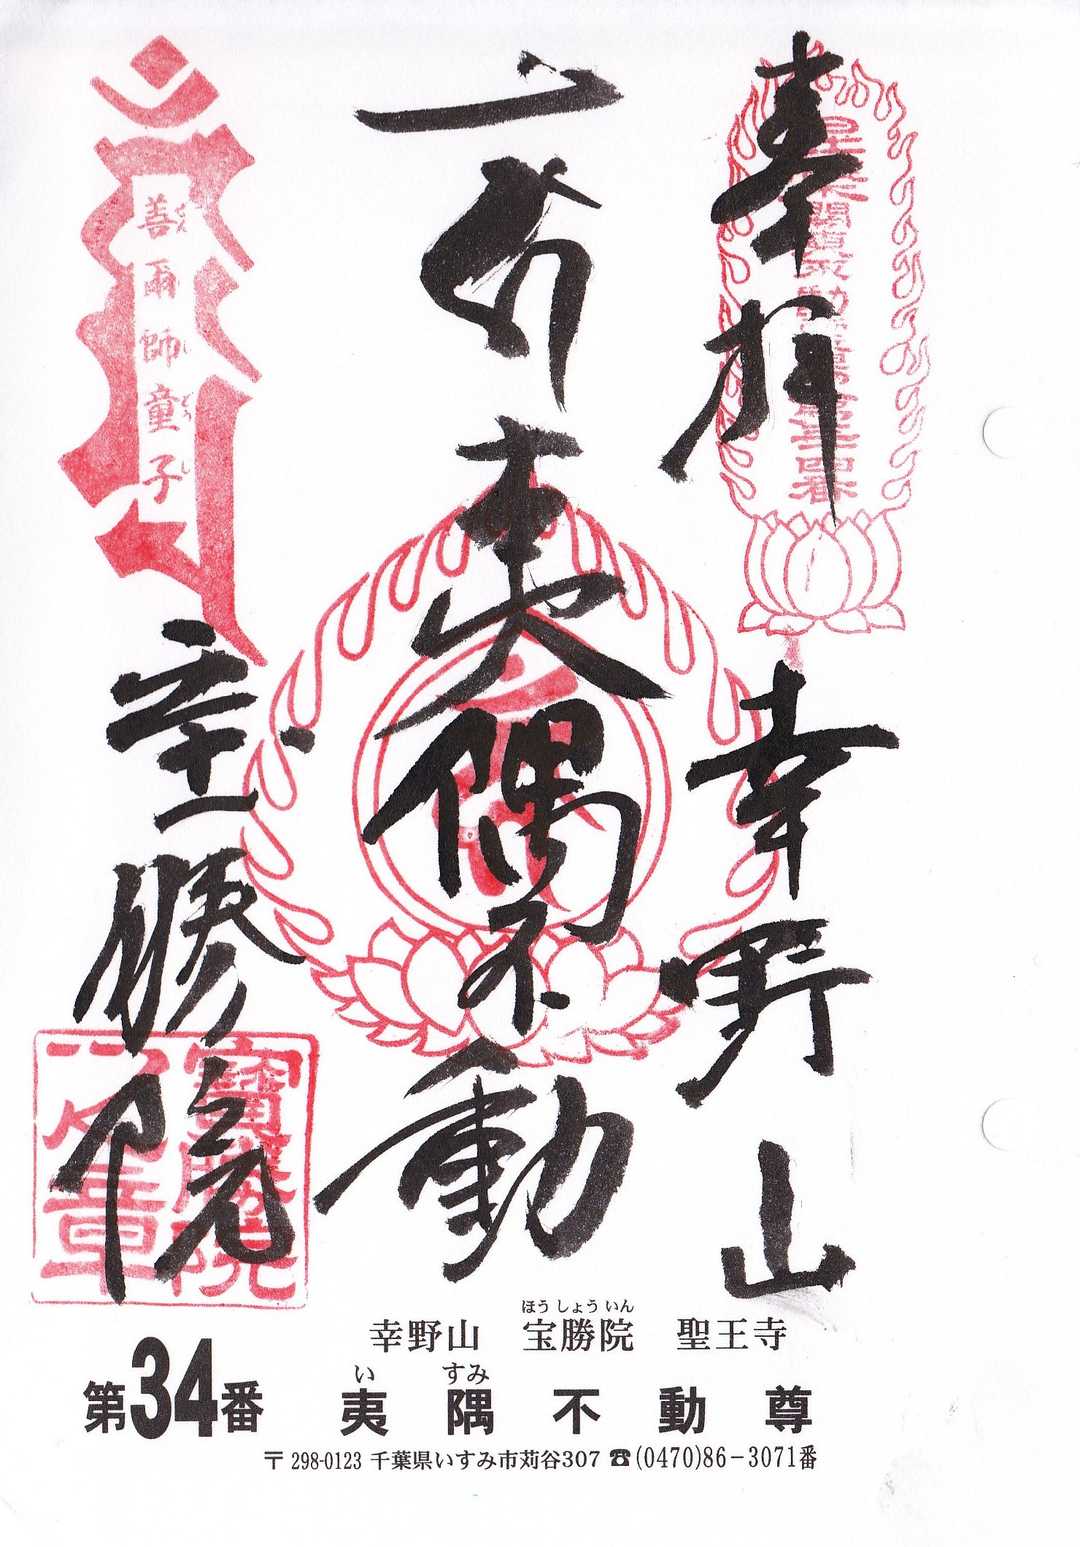 奉拝 幸野山
夷隅不動
善爾師童子
宝勝院
寶勝院
ほうしょういん
幸野山 宝勝院 聖王寺
第34番
い すみ
夷隅不動尊
〒298-0123 千葉県いすみ市苅谷307 ☎(0470)86-3071番